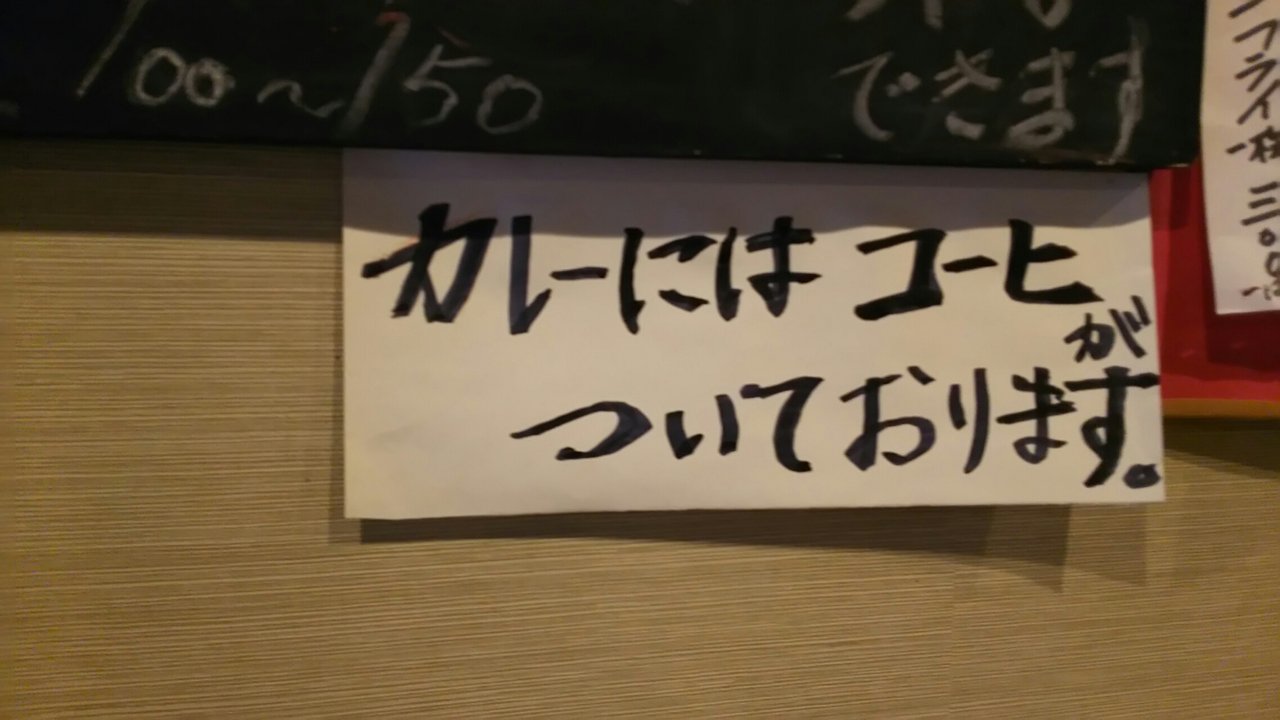 100~150
できます
カレーには コーヒ
が
ついております。
フライ一枚 三〇〇